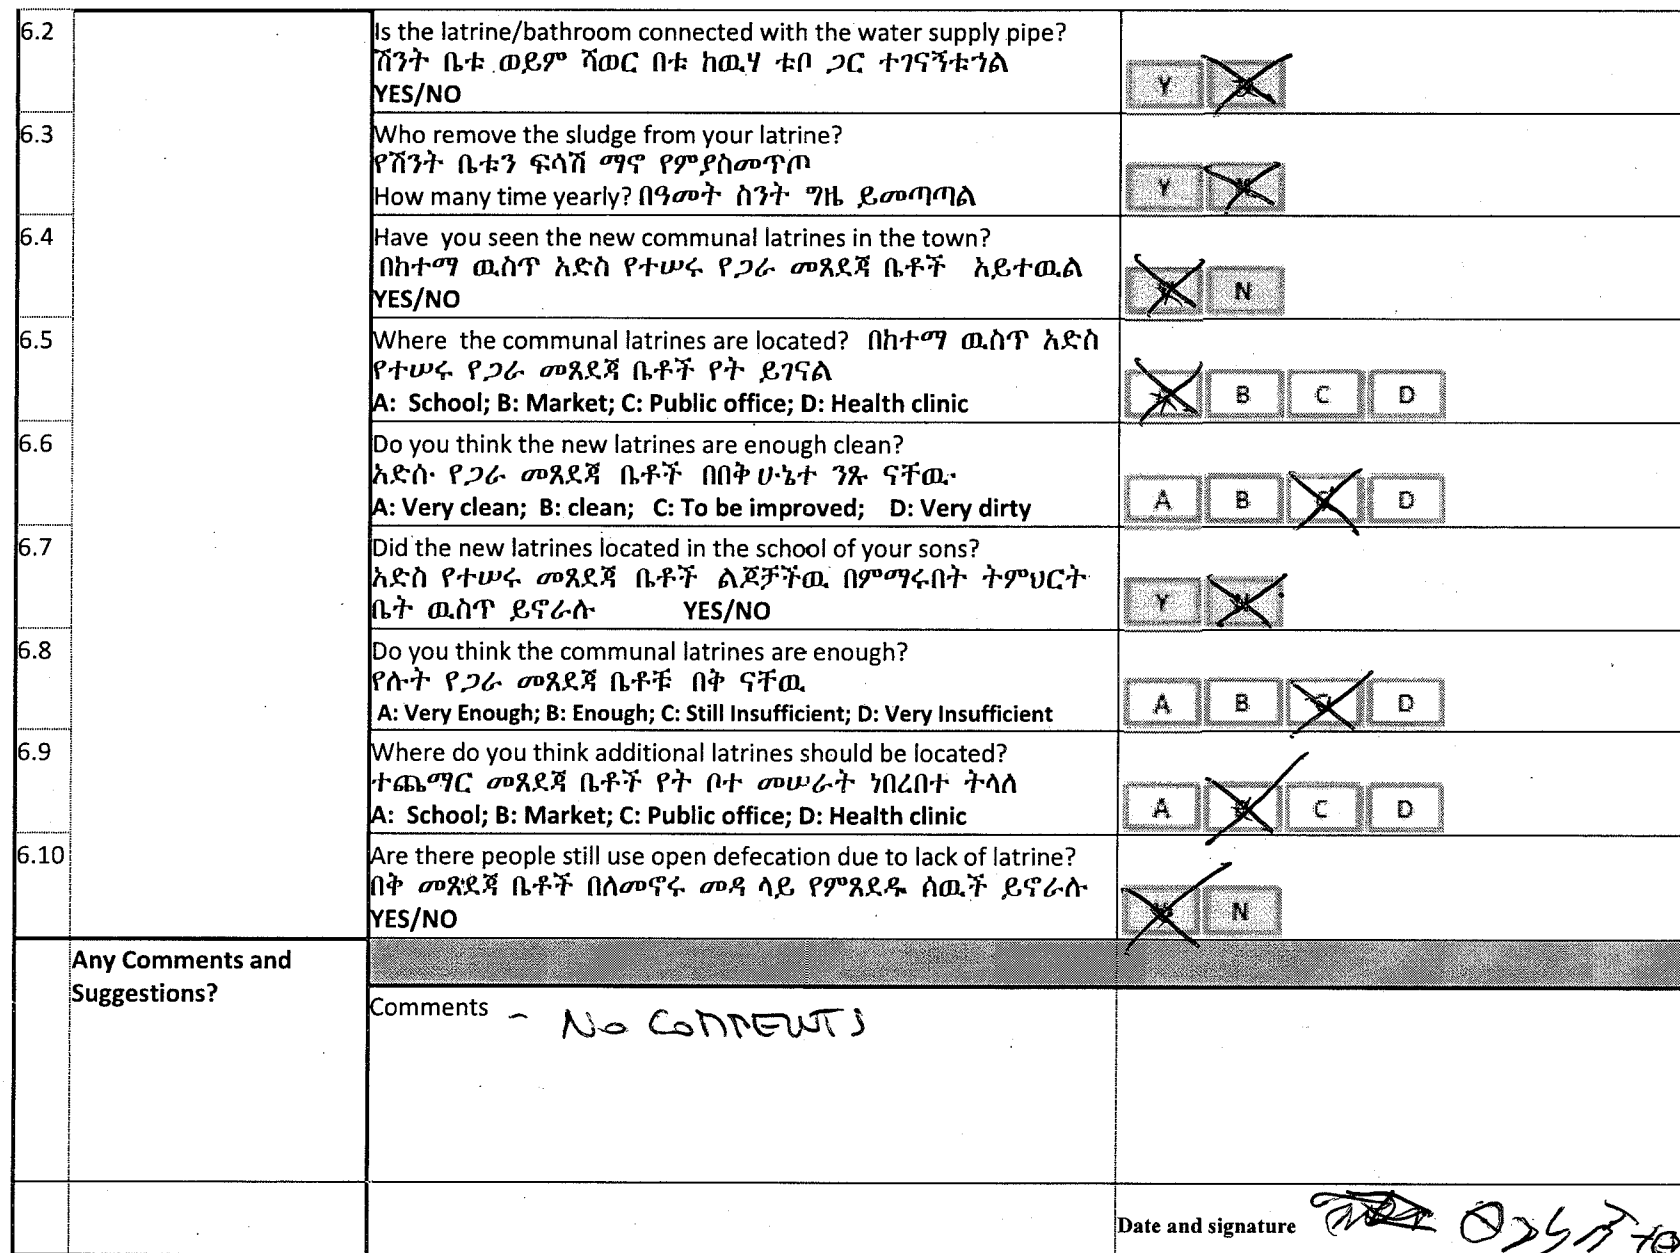 6.2
Is the latrine/bathroom connected with the water supply pipe?
ሽንት ቤቱ ወይም ሻወር በቱ ከዉሃ ቱቦ ጋር ተገናኝቱኀል
YES/NO
Y
6.3
Who remove the sludge from your latrine?
የሽንት ቤቱን ፍሳሽ ማኖ የምያስመጥጦ
How many time yearly? በዓመት ስንት ግዜ ይመጣጣል
Y
6.4
Have you seen the new communal latrines in the town?
በከተማ ዉስጥ አድስ የተሠሩ የጋራ መጸደጃ ቤቶች አይተዉል
YES/NO
N
6.5
Where the communal latrines are located? በከተማ ዉስጥ አድስ
የተሠሩ የጋራ መጸደጃ ቤቶች የት ይገናል
A: School; B: Market; C: Public office; D: Health clinic
B C D
6.6
Do you think the new latrines are enough clean?
አድሱ የጋራ መጸደጃ ቤቶች በበቅ ሁኔተ ንጹ ናቸዉ
A: Very clean; B: clean; C: To be improved; D: Very dirty
A B C D
6.7
Did the new latrines located in the school of your sons?
አድስ የተሠሩ መጸደጃ ቤቶች ልጆቻችዉ በምማሩበት ትምህርት
ቤት ዉስጥ ይኖራሉ YES/NO
Y
6.8
Do you think the communal latrines are enough?
የሉት የጋራ መጸደጃ ቤቶቹ በቅ ናቸዉ
A: Very Enough; B: Enough; C: Still Insufficient; D: Very Insufficient
A B C D
6.9
Where do you think additional latrines should be located?
ተጨማር መጸደጃ ቤቶች የት ቦተ መሠራት ነበረበተ ትላለ
A: School; B: Market; C: Public office; D: Health clinic
A C D
6.10
Are there people still use open defecation due to lack of latrine?
በቅ መጸደጃ ቤቶች በለመኖሩ መዳ ላይ የምጸደዱ ሰዉች ይኖራሉ
YES/NO
N
Any Comments and
Suggestions?
Comments - No COMMENTS
Date and signature